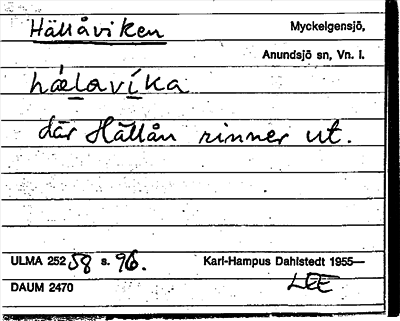 Hällåviken Myckelgensjö,
Anundsjö sn, Vn. l.
hǽlavíka
där Hällån rinner ut.
ULMA 252 58 s. 96. Karl-Hampus Dahlstedt 1955—
DAUM 2470 LEE